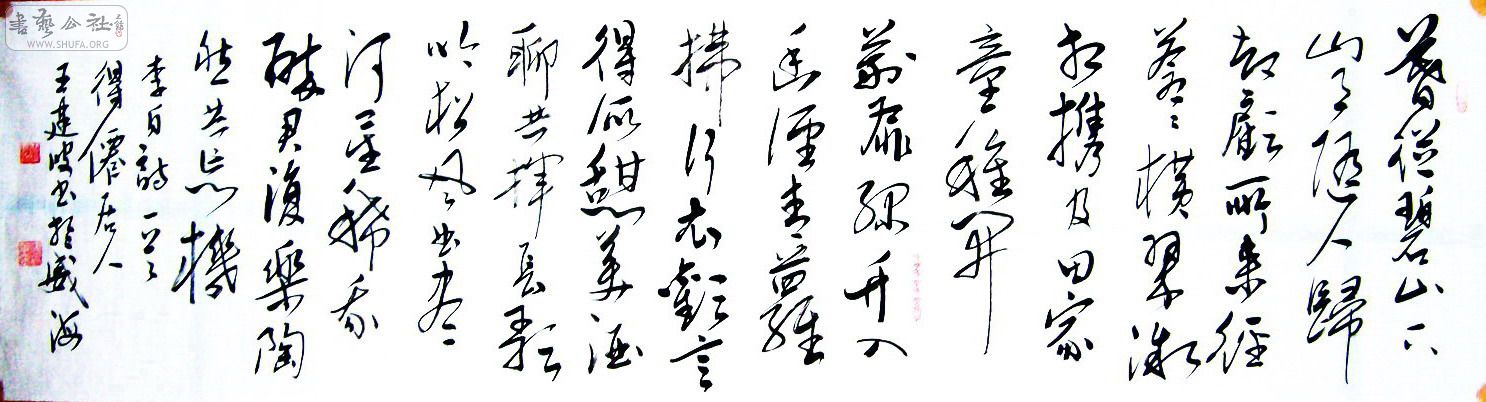 書藝公社
WWW.SHUFA.ORG
暮從碧山下
山月隨人歸
卻顧所來徑
蒼蒼橫翠微
相攜及田家
童稚開
荊扉綠竹入
幽徑青蘿
拂行衣歡言
得所憇美酒
聊共揮長歌
吟松風曲盡
河星稀我
醉君復樂陶
然共忘機
李白詩一首
得僊居人
王建波書於威海